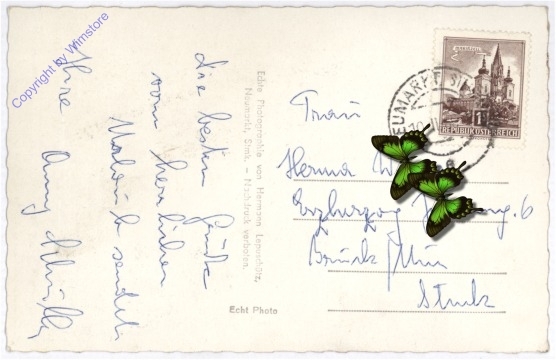 Copyright by Wimstore
die besten Grüße
vom herrlichen
Urlaub sendet
Ihre Anny
Echte Photographie von Hermann Leposchütz,
Neumarkt, Stmk. – Nachdruck verboten.
Echt Photo
REPUBLIK ÖSTERREICH
NEUMARKT
Frau
Herma
Erzherzog 6
Bruck / Mur
Stmk